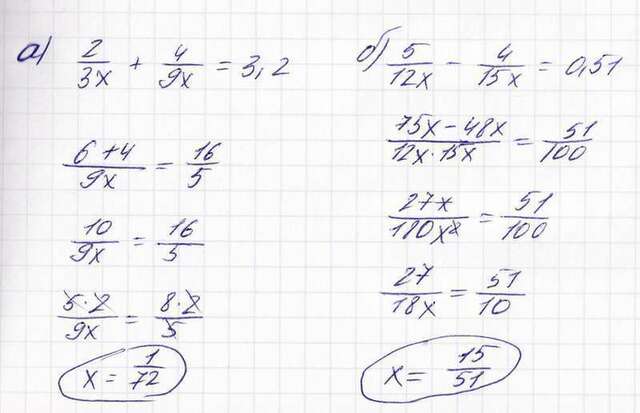 а) 2/3x + 4/9x = 3,2
6+4/9x = 16/5
10/9x = 16/5
5·2/9x = 8·2/5
x = 1/72
б) 5/12x - 4/15x = 0,51
75x - 48x/12x·15x = 51/100
27x/180x² = 51/100
27/18x = 51/10
x = 15/51